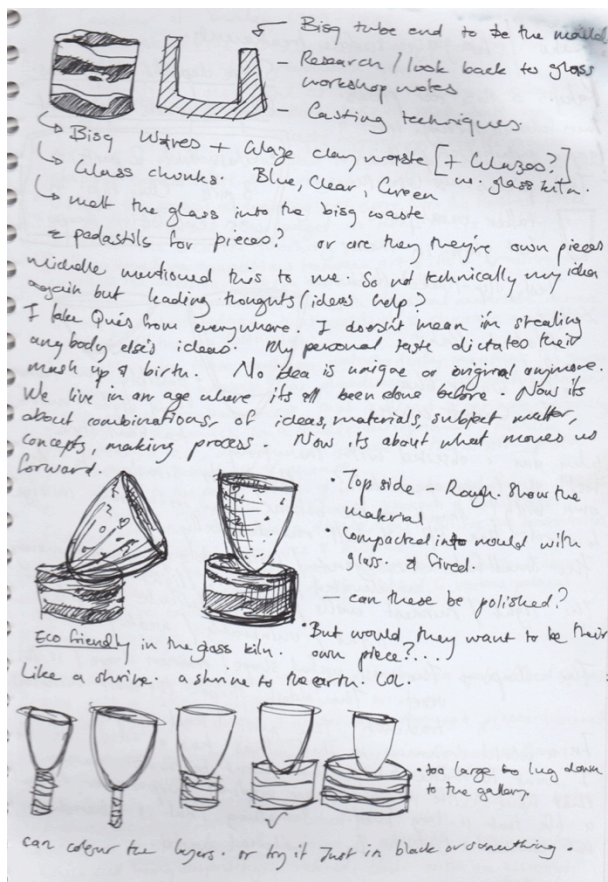 Bisq tube end to be the mould
- Research / look back to glass
workshop notes
- Casting techniques.
↳ Bisq Wares + Glaze clay waste [+ Glazes?]
↳ Glass chunks. Blue, Clear, Green in glass kiln.
↳ melt the glass into the bisq waste
& pedastils for pieces? or are they they're own pieces
Michelle mentioned this to me. So not technically my idea
again but leading thoughts/ideas help?
I take Ques from everywhere. I doesn't mean im stealing
anybody else's ideas. My personal taste dictates their
mash up & birth. No idea is unique or original anymore.
We live in an age where its all been done before. Now its
about combinations, of ideas, materials, subject matter,
concepts, making process. Now its about what moves us
forward.
• Top side - Rough. Show the
material
• Compacted into mould with
glass. & fired.
- can these be polished?
Eco friendly in the glass kiln.
• But would they want to be their
own piece?...
Like a shrine. a shrine to the earth. LOL.
• too large to lug down
to the gallery.
can colour the layers. or try it Just in black or something.